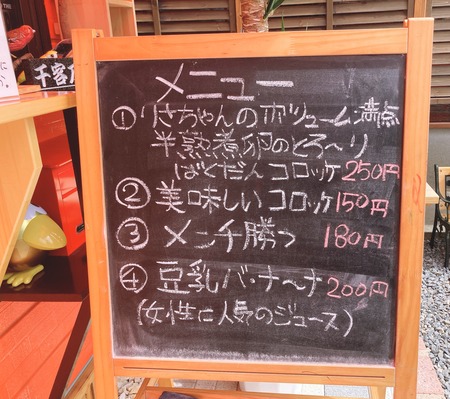 メニュー
① りさちゃんのボリューム満点
半熟煮卵のとろ〜り
ばくだんコロッケ 250円
② 美味しいコロッケ 150円
③ メンチ勝つ 180円
④ 豆乳バ・ナ〜ナ 200円
(女性に人気のジュース)